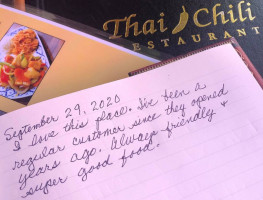 Thai Chili
RESTAURANT
September 29, 2020
I love this place. I've been a
regular customer since they opened
years ago. Always friendly &
super good food.